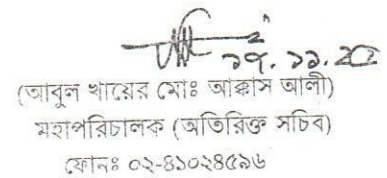 ১৭.১১.২০
(আবুল খায়ের মোঃ আক্কাস আলী)
মহাপরিচালক (অতিরিক্ত সচিব)
ফোনঃ ০২-৪১০২৪৫৯৬